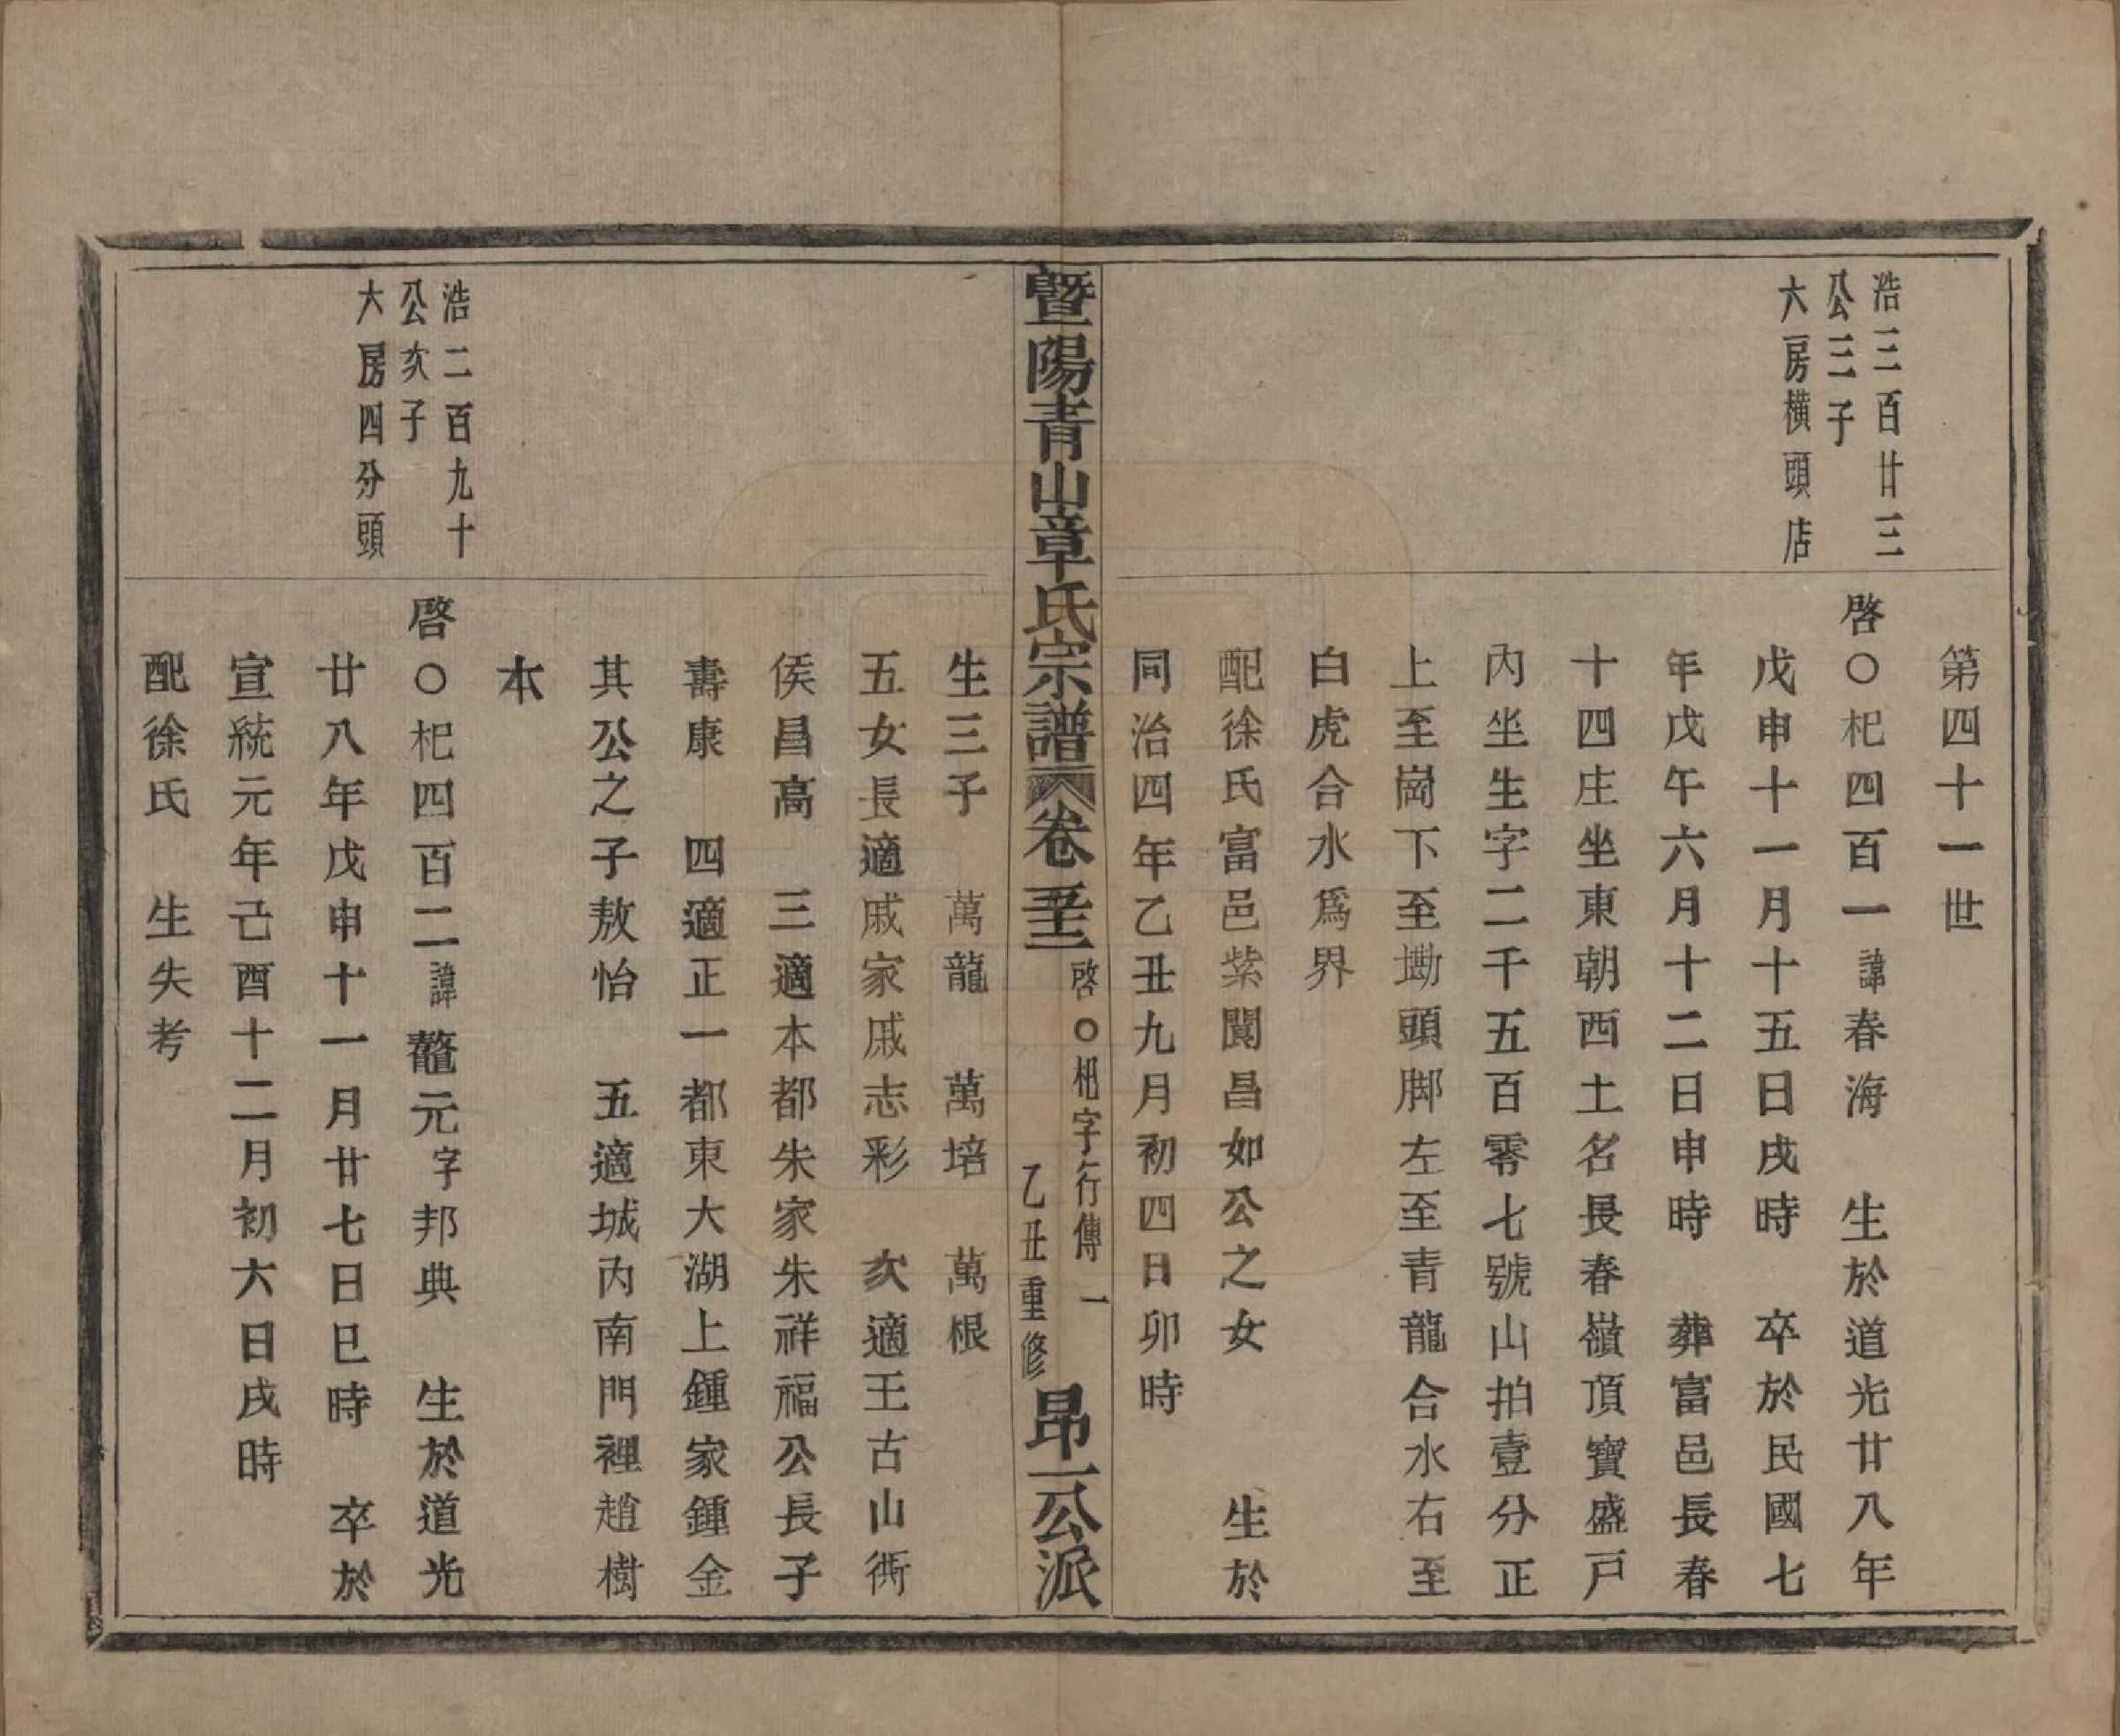 第四十一世
浩三百廿三
公三子
大房橫頭店
啓○杞四百一諱春海　生於道光廿八年
戊申十一月十五日戌時　卒於民國七
年戊午六月十二日申時　葬富邑長春
十四庄坐東朝西土名長春嶺頂寶盛戶
內坐生字二千五百零七號山拍壹分正
上至崗下至墈頭脚左至青龍合水右至
白虎合水爲界
配徐氏富邑紫閬昌如公之女　生於
同治四年乙丑九月初四日卯時
暨陽青山章氏宗譜　卷五十二　啓○杞字行傳　一　乙丑重修　昂一公派
生三子　萬龍　萬培　萬根
五女長適戚家戚志彩　次適王古山衖
侯昌高　三適本都朱家朱祥福公長子
壽康　四適正一都東大湖上鍾家鍾金
其公之子敖怡　五適城內南門裡趙樹
本
浩二百九十
公次子
大房四分頭
啓○杞四百二諱鼇元字邦典　生於道光
廿八年戊申十一月廿七日巳時　卒於
宣統元年己酉十二月初六日戌時
配徐氏　生失考